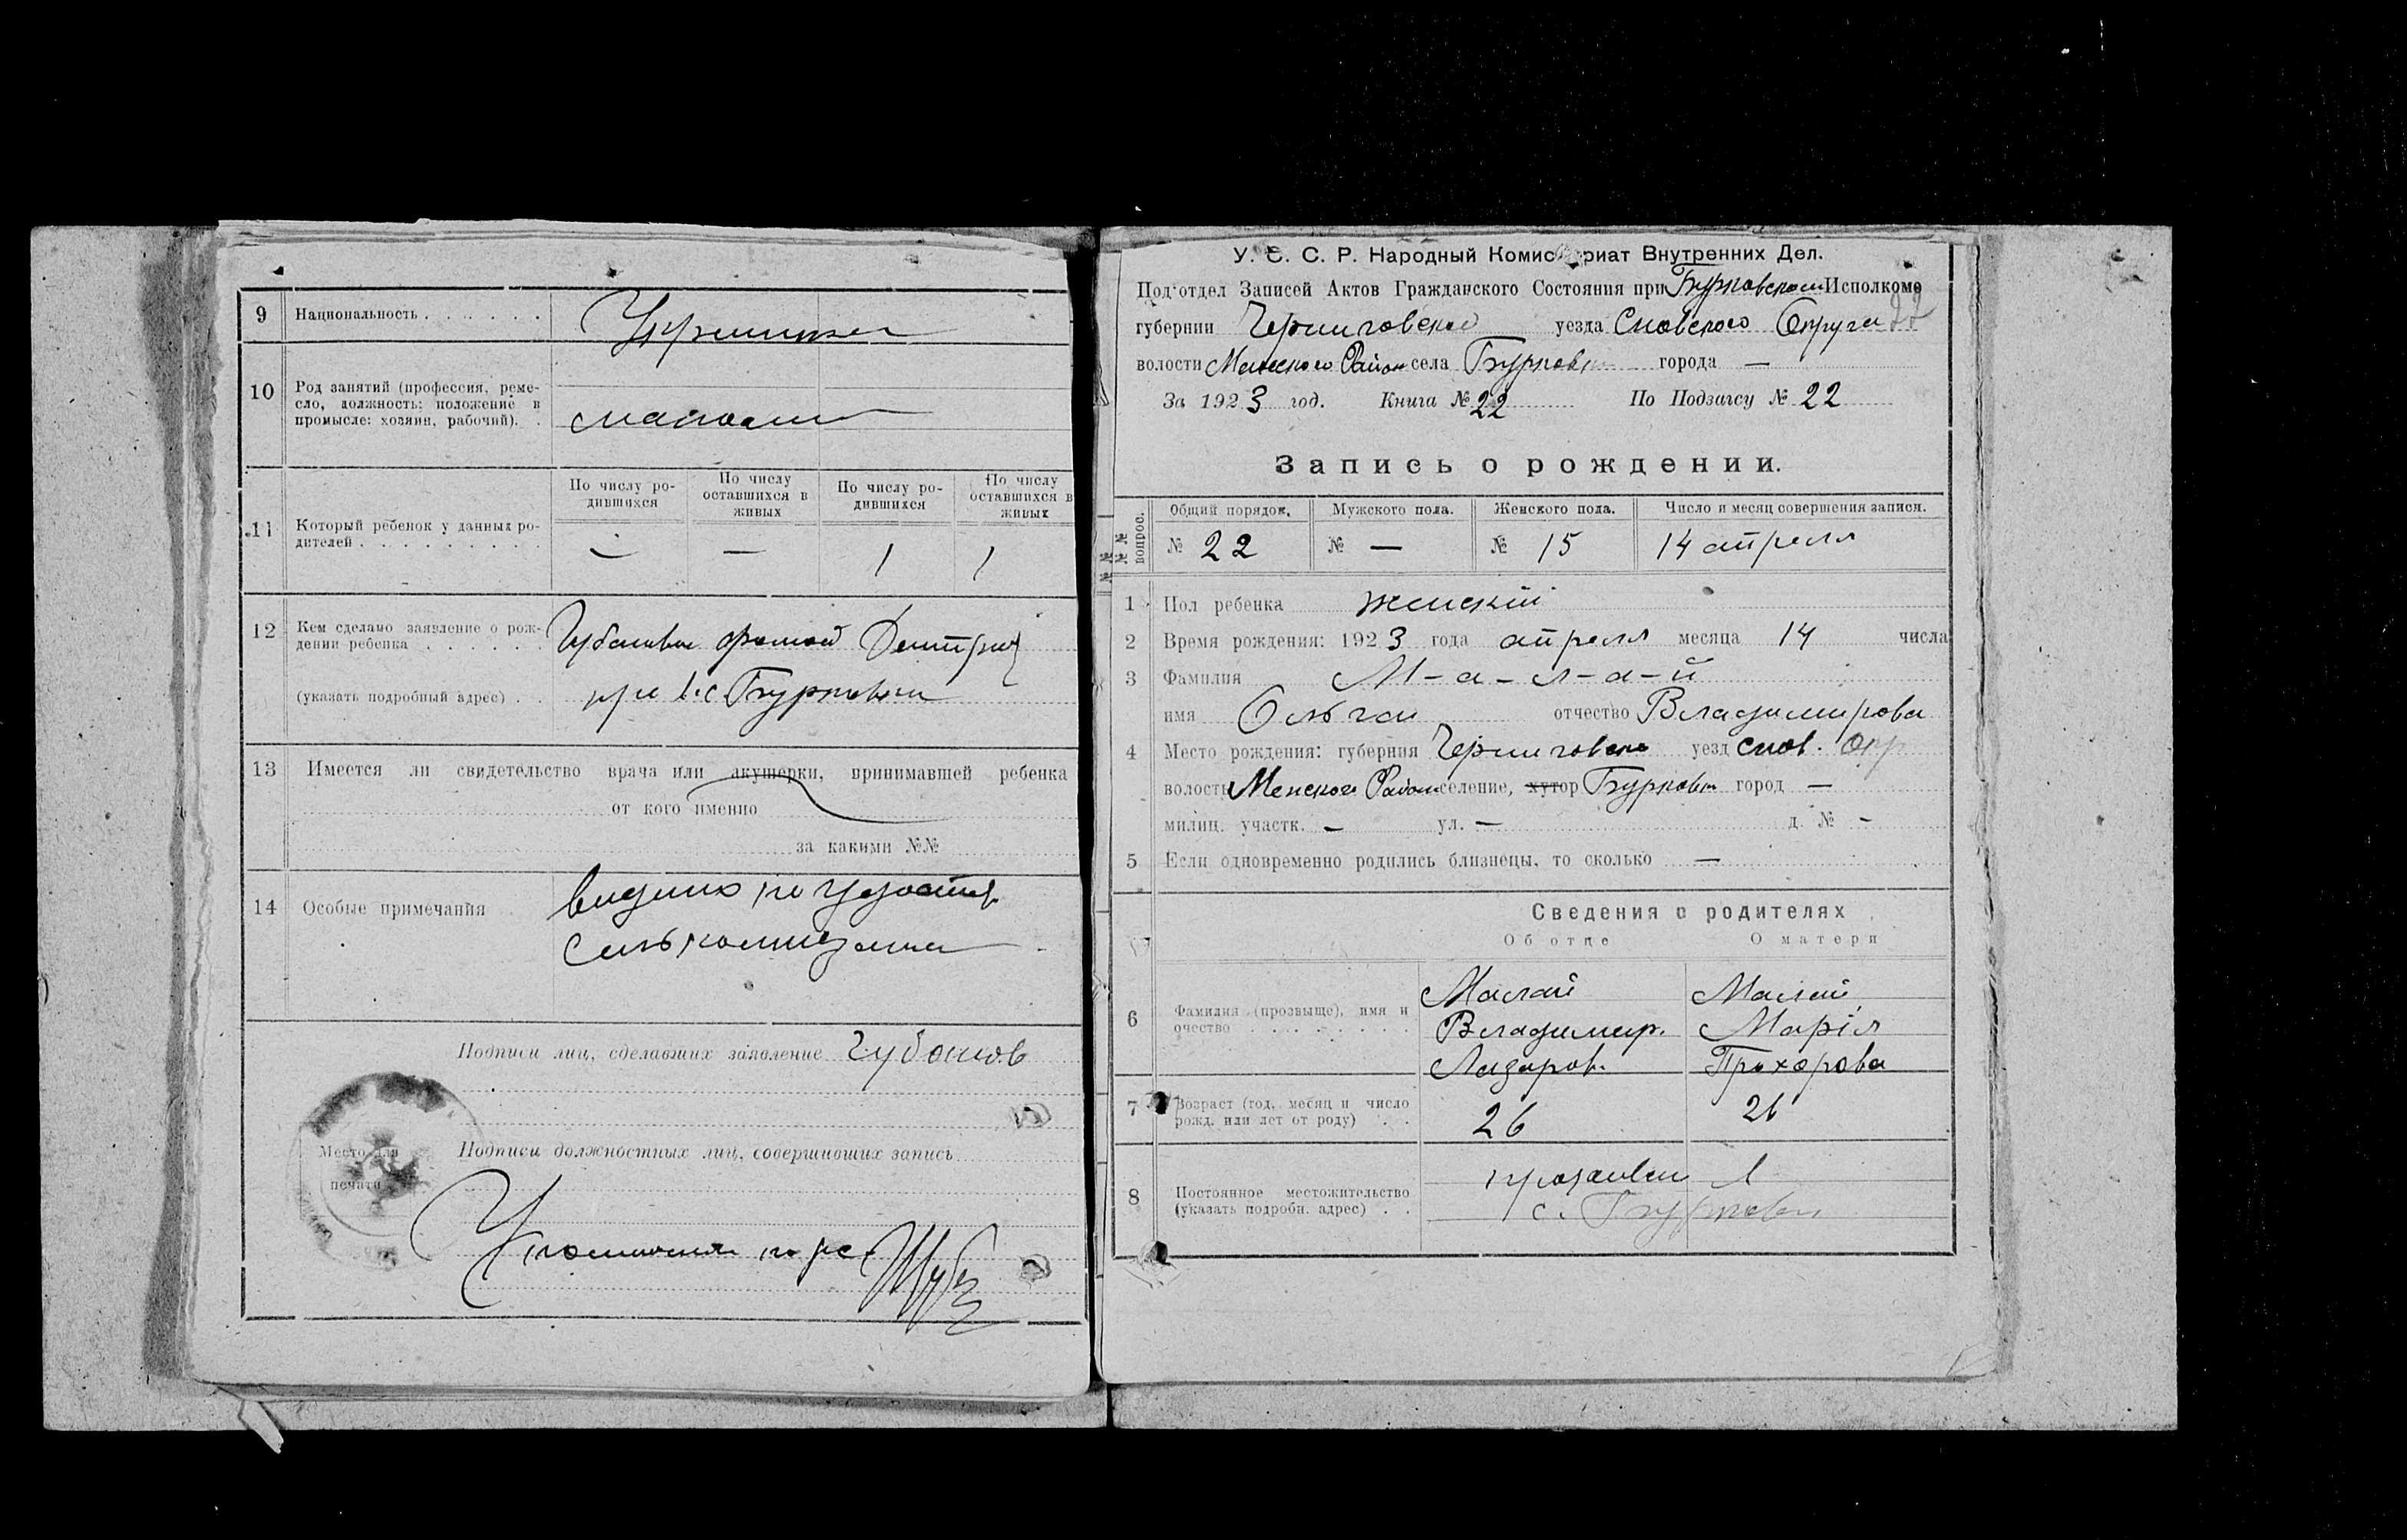 9 Национальность . . . . . .
10 Род занятий (профессия, реме-
сло, должность: положение в
промысле: хозяин, рабочий). .
По числу ро-
дившихся
По числу
оставшихся в
живых
По числу ро-
дившихся
По числу
оставшихся в
живых
11 Который ребенок у данных ро-
дителей . . . . . . . . .
— — 1 1
12 Кем сделано заявление о рож-
дении ребенка . . . . . .
(указать подробный адрес) . . с. Бурковки
13 Имеется ли свидетельство врача или акушерки, принимавшей ребенка
от кого именно
за какими №№
14 Особые примечания
Подписи лиц, сделавших заявление Губанов
Место для
печати
Подписи должностных лиц, совершивших запись
У. С. С. Р. Народный Комиссариат Внутренних Дел.
Под'отдел Записей Актов Гражданского Состояния при Бурковском Исполкоме
губернии Черниговской уезда Сновского Округа 22
волости Менского Район села Бурковки города —
За 1923 год. Книга № 22 По Подзагсу № 22
Запись о рождении.
№№ вопрос.
Общий порядок. Мужского пола. Женского пола. Число и месяц совершения записи.
№ 22 № — № 15 14 апреля
1 Пол ребенка женский
2 Время рождения: 1923 года апреля месяца 14 числа
3 Фамилия М-а-л-а-й
имя Ольга отчество Владимирова
4 Место рождения: губерния Черниговск уезд Снов. Окр
волость Менского Район селение, хутор Бурковки город —
милиц. участк. — ул. — д. № —
5 Если одновременно родились близнецы, то сколько —
Сведения о родителях
Об отце О матери
6 Фамилия (прозвище), имя и
очество . . . . . . . . .
Малай Малай
Владимир. Марія
Лазаров. Прохорова
7 Возраст (год, месяц и число
рожд. или лет от роду) . .
26 26
8 Постоянное местожительство
(указать подробн. адрес) . .
с. Бурковки